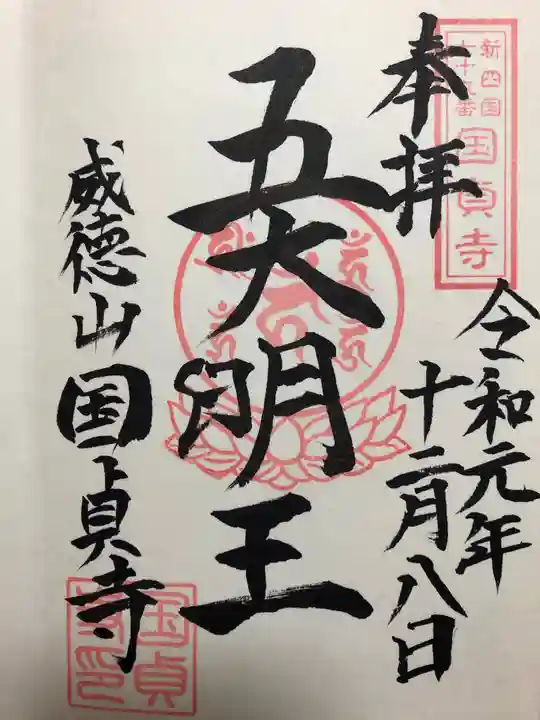 新四国
国貞寺
奉拝
令和元年
十二月八日
五大明王
威徳山国貞寺
国貞
寺印